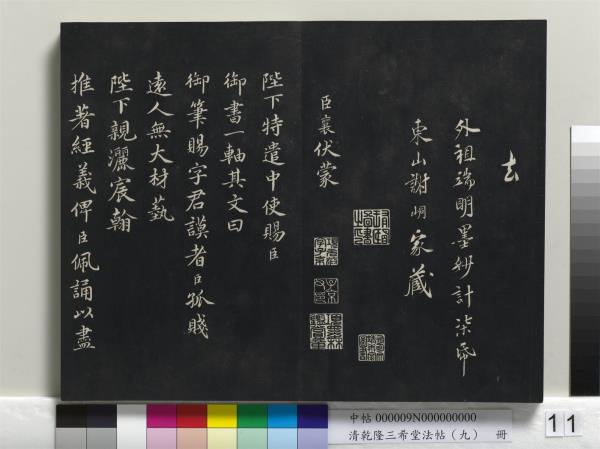 去
外祖端明墨妙計柒帋
東山謝峒家藏
臣襄伏蒙
陛下特遣中使賜臣
御書一軸其文曰
御筆賜字君謨者臣孤賤
遠人無大材藝
陛下親灑宸翰
推著經義俾臣佩誦以盡
中帖 000009N000000000
清乾隆三希堂法帖（九） 冊
11